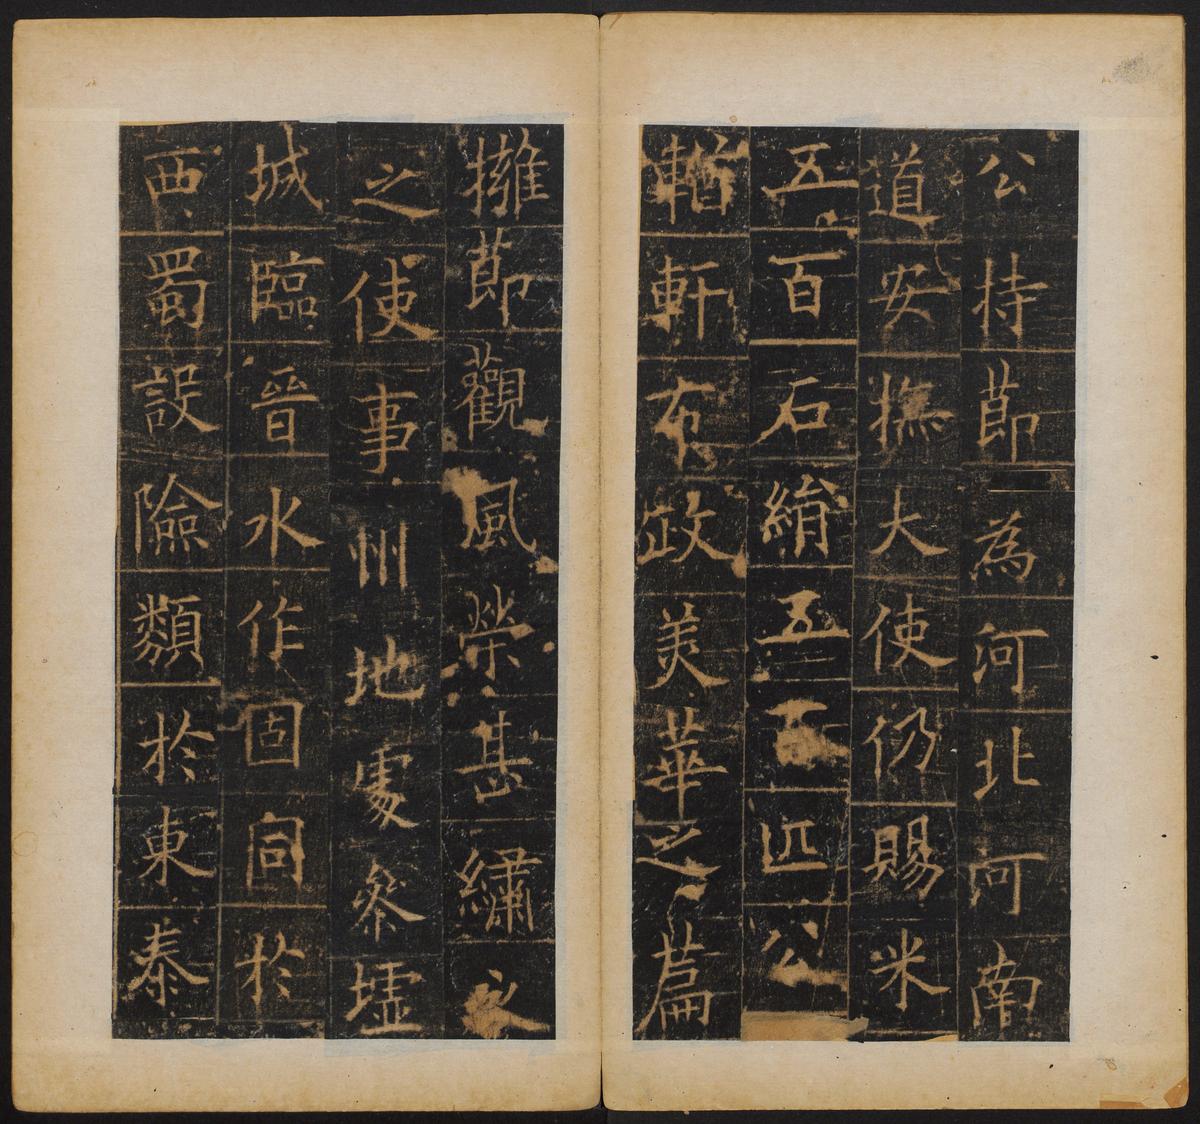 公持節為河北河南
道安撫大使仍賜米
五百石絹五百匹公
輶軒布政美華之篇
擁節觀風榮甚繡衣
之使事州地處參墟
城臨晉水作固同於
西蜀設險類於東秦